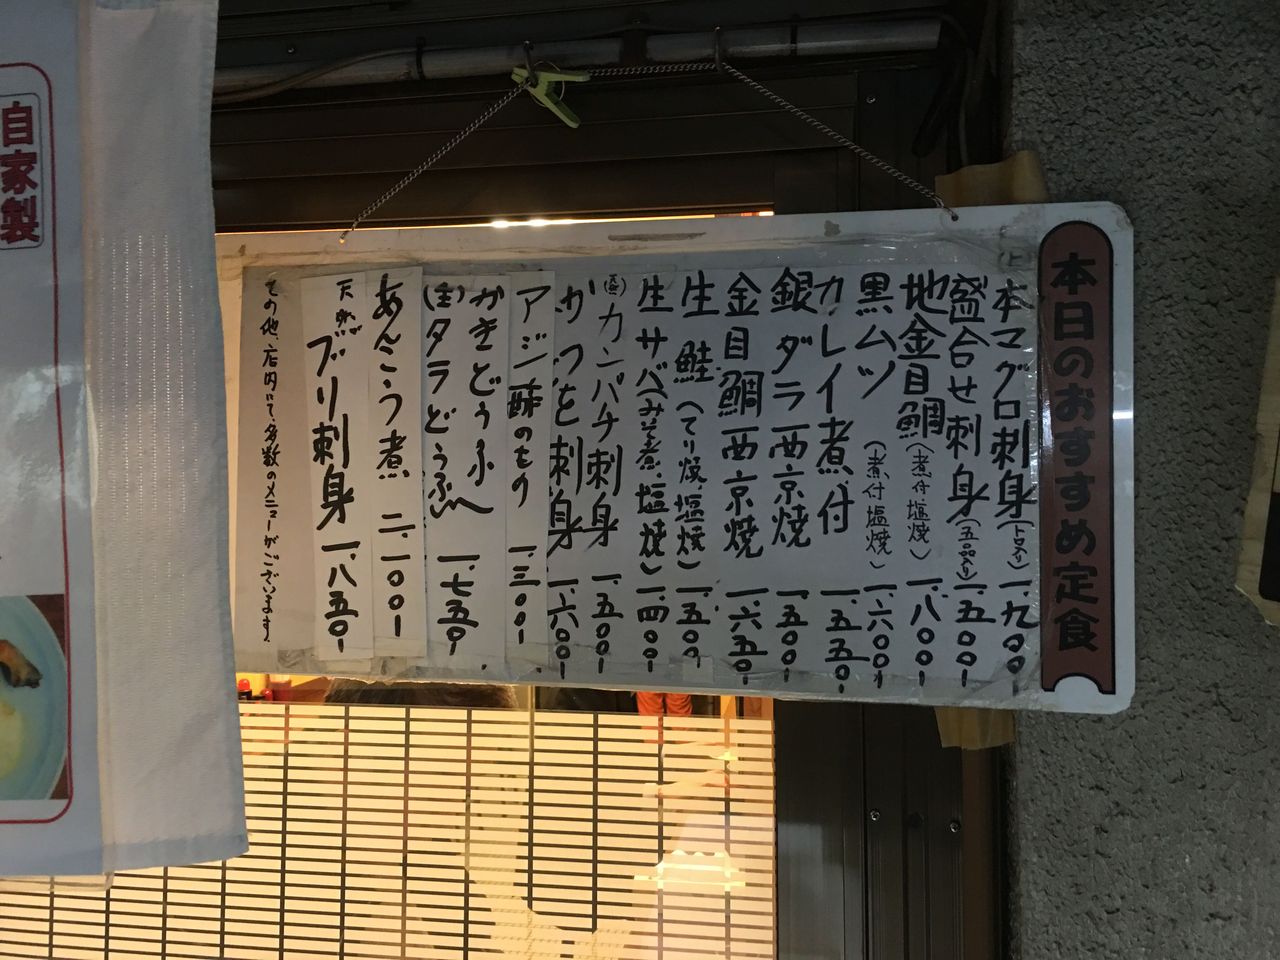 本日のおすすめ定食
本マグロ刺身(トロ入り)一、九〇〇-
盛合せ刺身(五品入り)一、五〇〇-
地金目鯛(煮付 塩焼)一、八〇〇-
黒ムツ(煮付 塩焼)一、六〇〇-
カレイ煮付 一、五五〇-
銀ダラ西京焼 一、五〇〇-
金目鯛西京焼 一、六五〇-
生鮭(てり焼、塩焼)一、五〇〇
生サバ(みそ煮、塩焼)一、四〇〇-
カンパチ刺身 一、五〇〇-
かつを刺身 一、六〇〇-
アジ酢のもの 一、三〇〇-
かきどうふ
(生)タラどうふ 一、七五〇-
あんこう煮 二、一〇〇-
天然ブリ刺身 一、八五〇-
その他、店内にて、多数のメニューがございます。
自家製